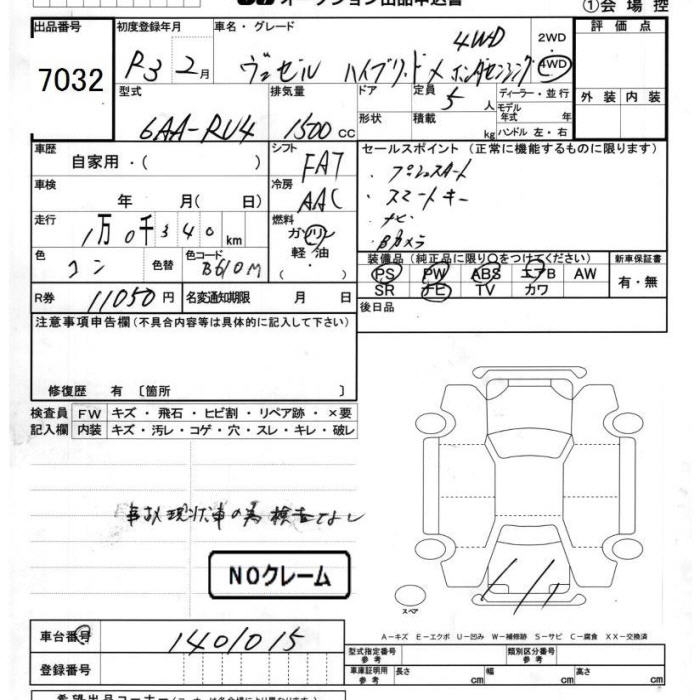 オークション出品申込書 ①会場控
出品番号 初度登録年月 車名・グレード 2WD 評価点
7032 R3 2月 ヴェゼル ハイブリッド X ホンダセンシング 4WD 4WD
型式 排気量 ドア 定員 ディーラー・並行 外装 内装
5人 モデル年式 年
6AA-RU4 1500cc 形状 積載 kg ハンドル 左・右
車歴 シフト セールスポイント (正常に機能するものに限ります)
自家用・( ) FAT ・プッシュスタート
車検 冷房 ・スマートキー
年 月( 日) AAC ・ナビ
走行 燃料 ・Bカメラ
1万0千340km ガソリン
色 色替 色コード 軽油 装備品 (純正品に限り○をつけてください) 新車保証書
コン B610M ( ・ ) PS PW ABS エアB AW 有・無
R券 11050円 名変通知期限 月 日 SR ナビ TV カワ
注意事項申告欄 (不具合内容等は具体的に記入して下さい) 後日品
修復歴 有 〔箇所 〕
検査員 FW キズ・飛石・ヒビ割・リペア跡・×要
記入欄 内装 キズ・汚レ・コゲ・穴・スレ・キレ・破レ
事故現状車の為検査なし
NOクレーム
スペア
A-キズ E-エクボ U-凹み W-補修跡 S-サビ C-腐食 XX-交換済
車台番号 1401015 型式指定番号 参考 類別区分番号 参考
登録番号 車庫証明用 参考 長さ cm 幅 cm 高さ cm
希望出品コーナー